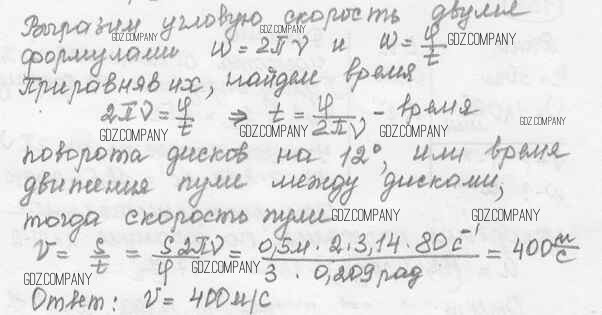 Выразим угловую скорость двумя
формулами ω = 2πν и ω = φ/t
Приравняв их, найдем время
2πν = φ/t ⇒ t = φ/2πν - время
поворота дисков на 12°, или время
движения пули между дисками,
тогда скорость пули
v = s/t = s2πν/φ = 0,5м · 2 · 3,14 · 80 с⁻¹ / 3 · 0,209 рад = 400 м/с
Ответ: v = 400 м/с
GDZ.COMPANY
GDZ.COMPANY
GDZ.COMPANY
GDZ.COMPANY
GDZ.COMPANY
GDZ.COMPANY
GDZ.COMPANY
GDZ.COMPANY
GDZ.COMPANY
GDZ.COMPANY
GDZ.COMPANY
GDZ.COMPANY